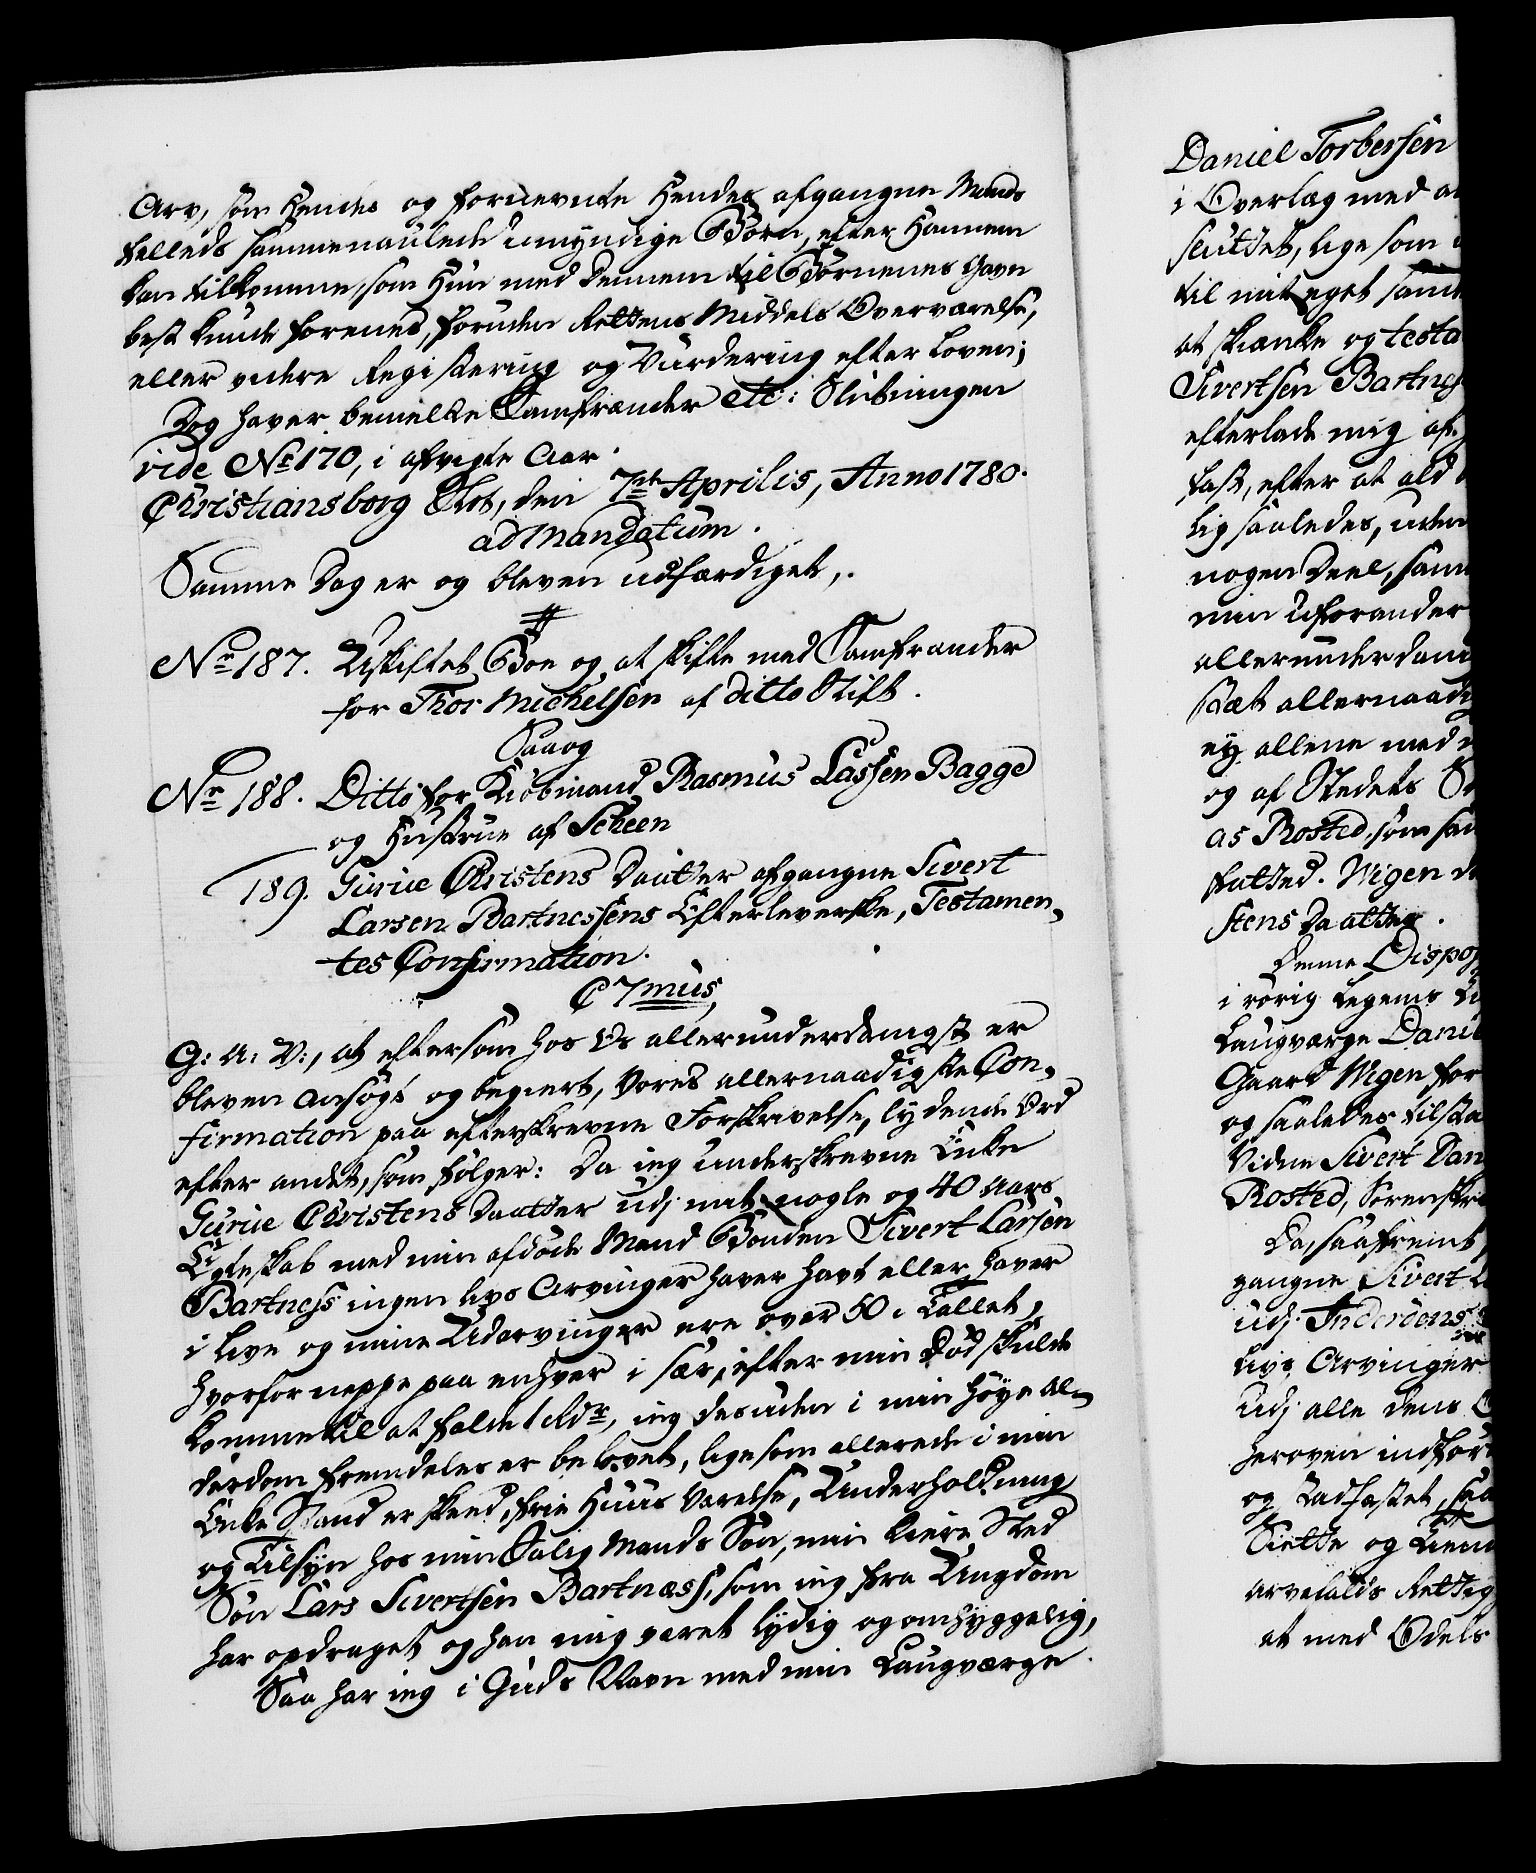 Arv, som Hendes og fornevnte Hendes afgangne Mands
fælleds sammenaulede umyndige Børn, efter Hannem
kan tilkomme, som Hun med dennem til Børnenes Gavn
best kunde forenes, foruden Rettens Middels Overværelse,
eller videre Registering og Vurdering efter Loven;
Dog haver bemelte Samfrænder etc: Slutningen
vide No 170, i afvigte Aar.
Christiansborg Slot, den 7de Aprilis, Anno 1780.
ad Mandatum.
Samme Dag er og bleven udfærdiget,.
No 187. Uskiftet Boe og at skifte med Samfrænder
for Thor Michelsen af ditto Stift.
Saaog
No 188. Ditto for Kiøbmand Rasmus Lassen Bagge
og Hustrue af Scheen
189. Gurue Christens Daatter afgangne Sivert
Larsen Bartnessens Efterleverske, Testamen-
tes Confirmation.
C 7mus,
G: A: V:, at eftersom hos Os allerunderdanigst er
bleven ansøgt og begiert, Vores allernaadigste Con-
firmation paa efterskrevne Forskrivelse, lydende Ord
efter andet, som følger: Da ieg underskrevne Enke
Gurue Christens Daatter udj mit nogle og 40 Aars
Egteskab med min afdøde Mand Bonden Sivert Larsen
Bartness ingen livs Arvinger haver havt eller haver
i live og mine Udarvinger ere over 50 i Tallet,
hvorfor neppe paa enhver i sær, efter min Død skulde
komme til at falde 1 rdr, ieg desuden i min høye Al-
derdom fremdeles er belovet, lige som allerede i min
Enke Stand er skeed, frie Huus Værelse, Underholdning
og Tilsyn hos min Salig Mands Søn, min kiere Sted
Søn Lars Sivertsen Bartnæss, som ieg fra Ungdom
har opdraget og han mig været lydig og omhyggelig,
Saa har ieg i Guds Navn med min Laugværge
Daniel Torbersen
i Overlæg med
sluttet, lige som
til mit eget
at skienke og testa
Sivertsen Bartnes
efterlade mig
fast, efter at ald
lig saaledes, uden
nogen Deel, sam
min Uforander
allerunderdan
sæt allernaadig
ey allene med
og af Stedets
as Rosted, som
fatted. Wigen
stens Daatter.
Denne Dispos
i rørig Legems
Laugværge Danie
Gaard Wigen for
og saaledes tilsta
Vidne Sivert Dan
Rosted, Sorenskr
Da, saafremt
gangne Sivert
udj Inderøens
livs Arvinger
Udj alle dens
heroven indført
og Stadfæstet,
Siette og
Arvefalds Rettig
at med Odels